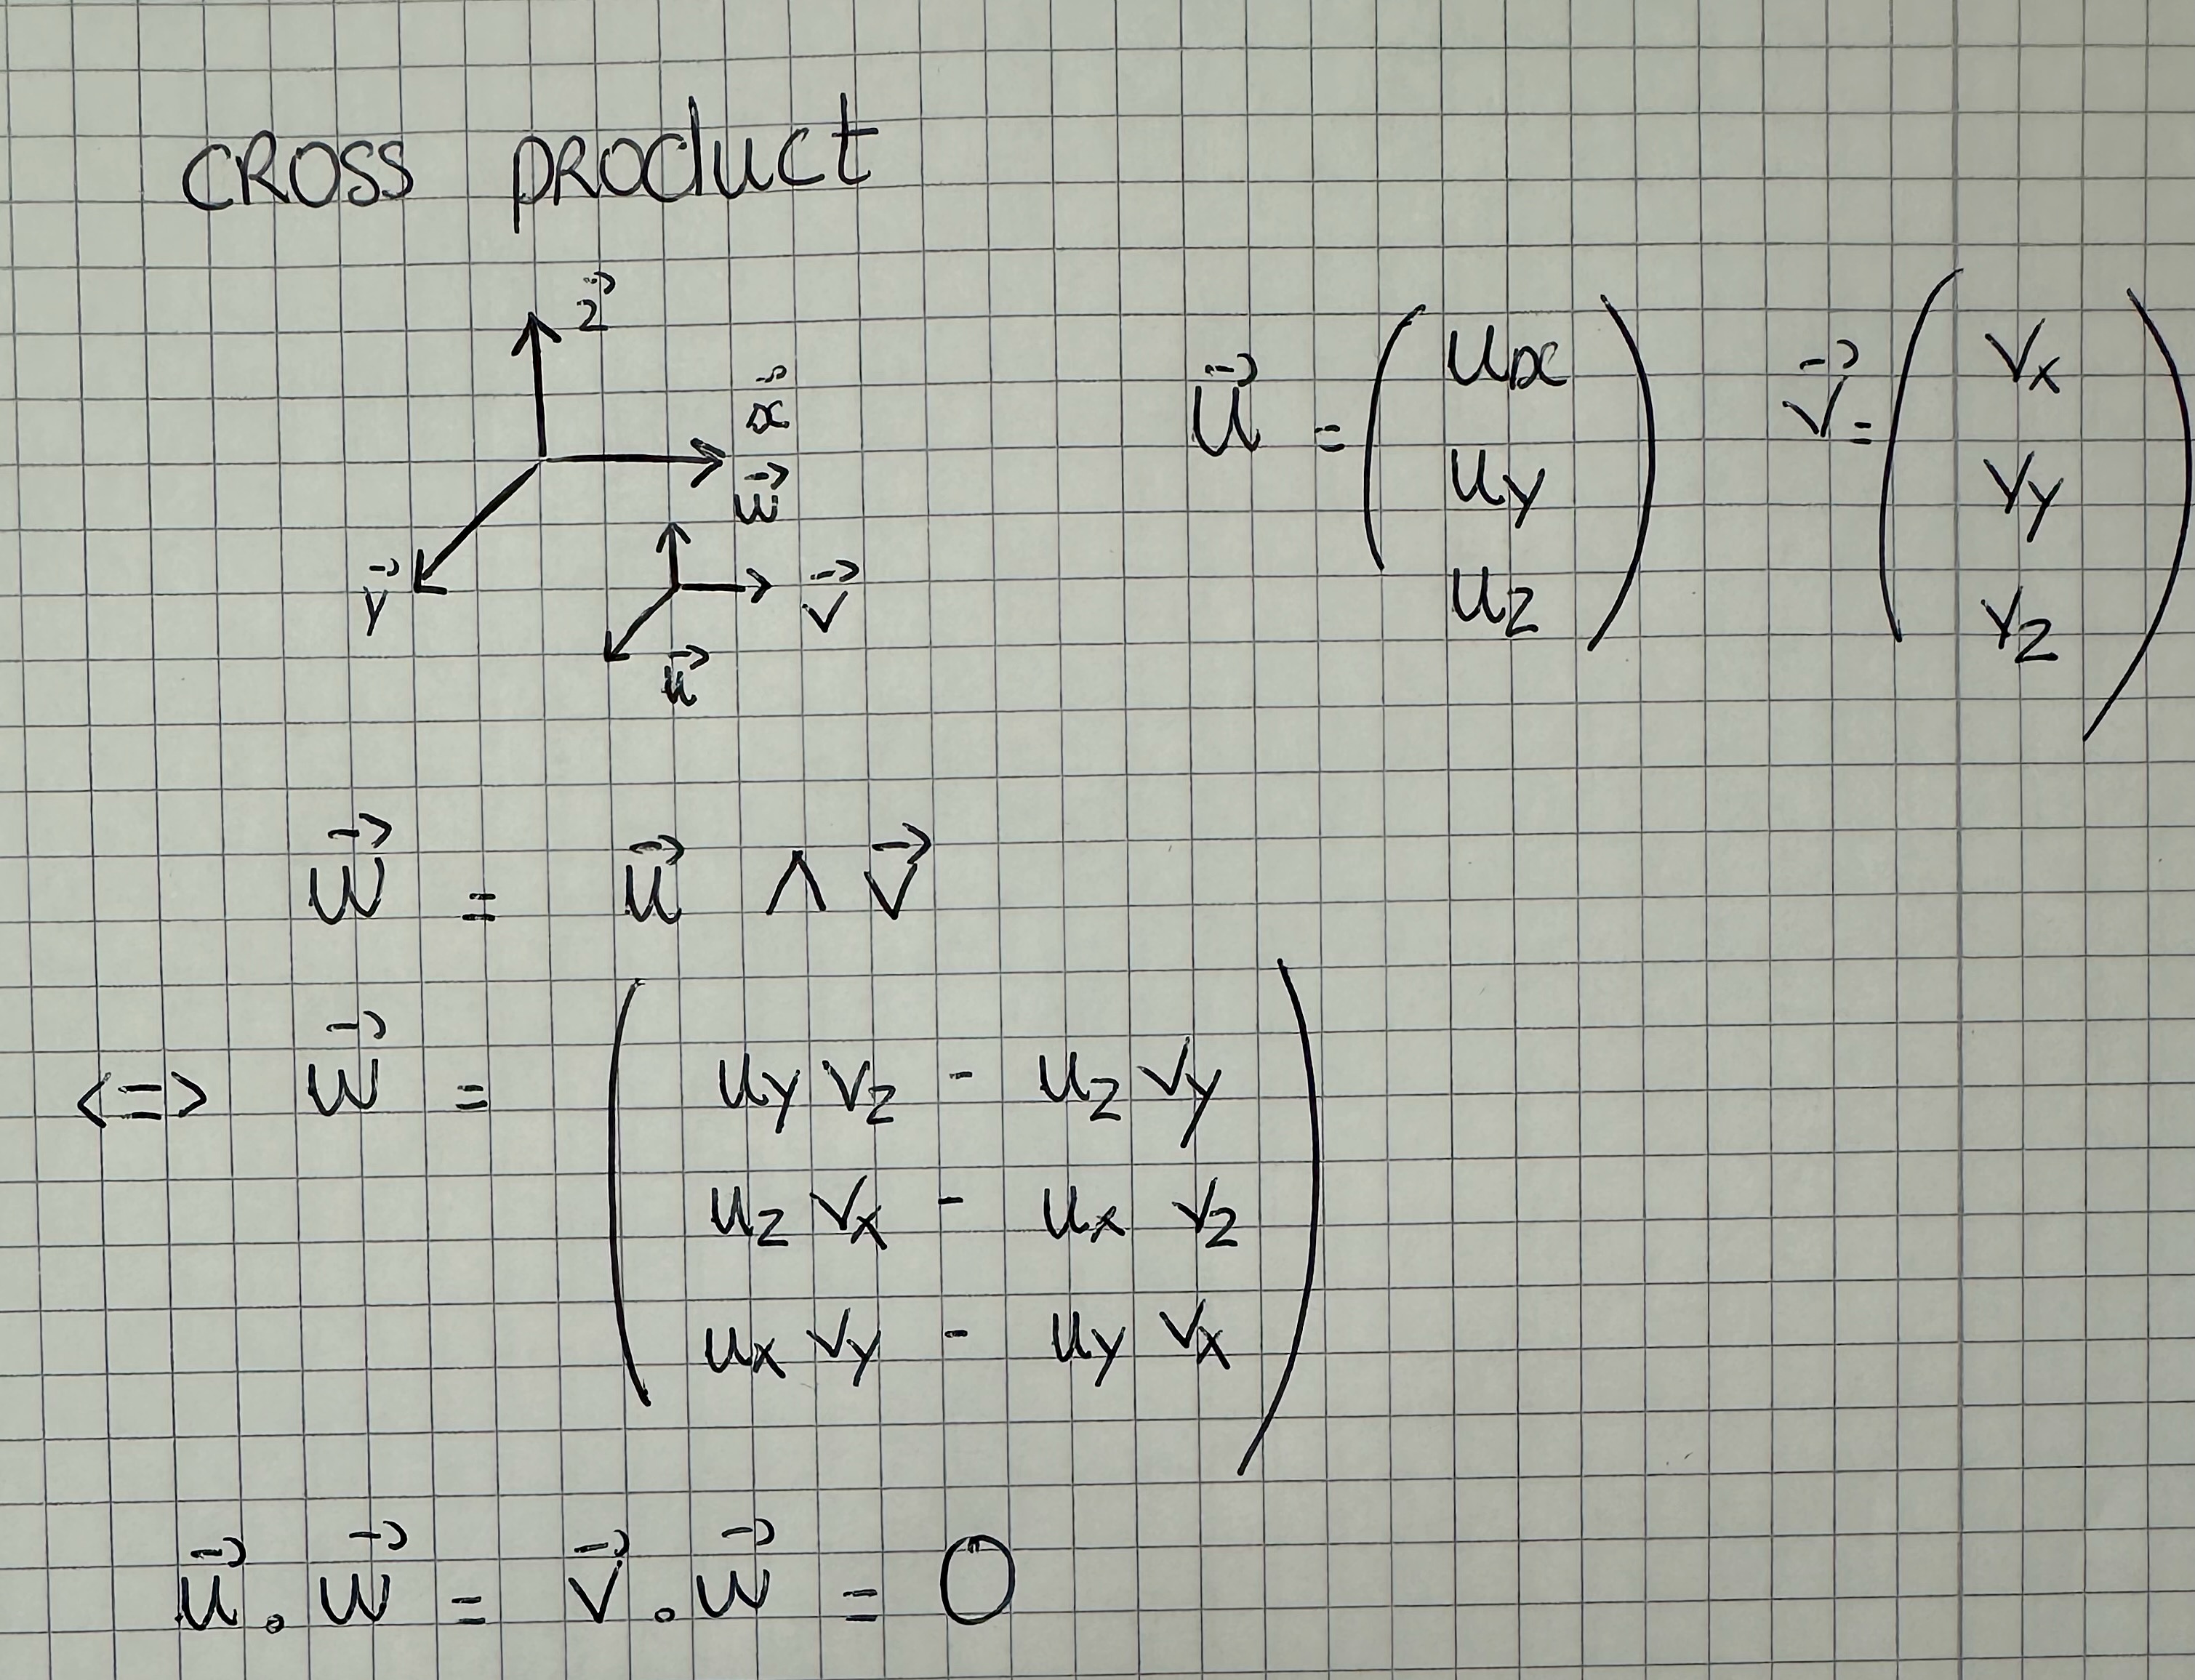 CROSS product
z⃗
x⃗
w⃗
y⃗
v⃗
u⃗
u⃗ = ( ux uy uz ) v⃗ = ( vx vy vz )
w⃗ = u⃗ ∧ v⃗
<=> w⃗ = ( uy vz - uz vy
uz vx - ux vz
ux vy - uy vx )
u⃗ . w⃗ = v⃗ . w⃗ = 0